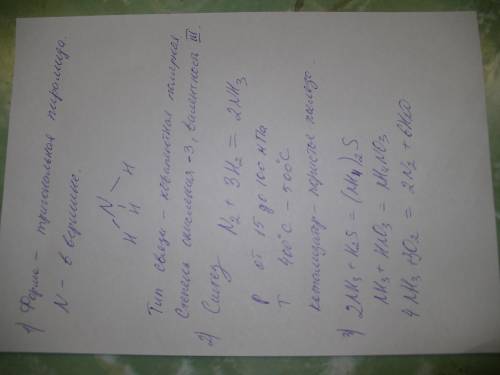 1) Форма – тригональная пирамида.
N – в вершине.
N
H H H
Тип связи – ковалентная полярная
Степень окисления -3, валентность III.
2) Синтез N₂ + 3H₂ = 2NH₃
P от 15 до 100 мПа
T 400°C – 500°C
Катализатор – пористое железо.
3) 2NH₃ + H₂S = (NH₄)₂S
NH₃ + HNO₃ = NH₄NO₃
4NH₃ + 3O₂ = 2N₂ + 6H₂O